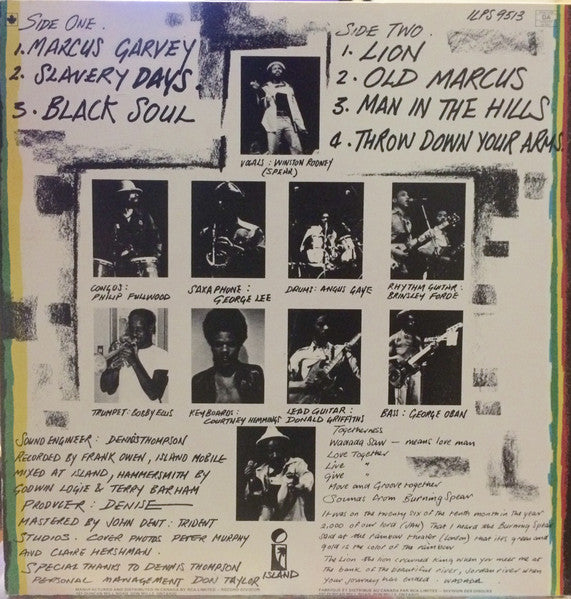 SIDE ONE.
1. MARCUS GARVEY
2. SLAVERY DAYS.
3. BLACK SOUL
SIDE TWO.
1. LION
2. OLD MARCUS
3. MAN IN THE HILLS
4. THROW DOWN YOUR ARMS.
ILPS 9513
VOCALS: WINSTON RODNEY
(SPEAR)
CONGOS:
PHILIP FULLWOOD
SAXAPHONE:
GEORGE LEE
DRUMS: ANGUS GAYE
RHYTHM GUITAR:
BRINSLEY FORDE
TRUMPET: BOBBY ELLIS
KEYBOARDS:
COURTNEY HEMMINGS
LEAD GUITAR:
DONALD GRIFFITHS
BASS: GEORGE OBAN
SOUND ENGINEER: DENNIS THOMPSON
RECORDED BY FRANK OWEN, ISLAND MOBILE
MIXED AT ISLAND, HAMMERSMITH BY
GODWIN LOGIE & TERRY BARHAM
PRODUCER: DENISE
MASTERED BY JOHN DENT: TRIDENT
STUDIOS. COVER PHOTOS PETER MURPHY
AND CLAIRE HERSHMAN.
SPECIAL THANKS TO DENNIS THOMPSON
PERSONAL MANAGEMENT DON TAYLOR
ISLAND
Togetherness
Wadada Saw — means love man
Love Together
Live "
Give "
Move and Groove together
(Sounds from Burning Spear
It was on the twenty six of the tenth month in the year
2,000 of our lord (JAH) That I heard the Burning Spear
said at the rainbow theater (London) that its green and
gold is the color of the rainbow
The Lion the lion crowned King when you meet me at
the bank of the beautiful river, Jordan river when
your journey has ended - WADADA
MANUFACTURED AND DISTRIBUTED IN CANADA BY RCA LIMITED - RECORD DIVISION
FABRIQUÉ ET DISTRIBUÉ AU CANADA PAR RCA LIMITED - DIVISION DES DISQUES